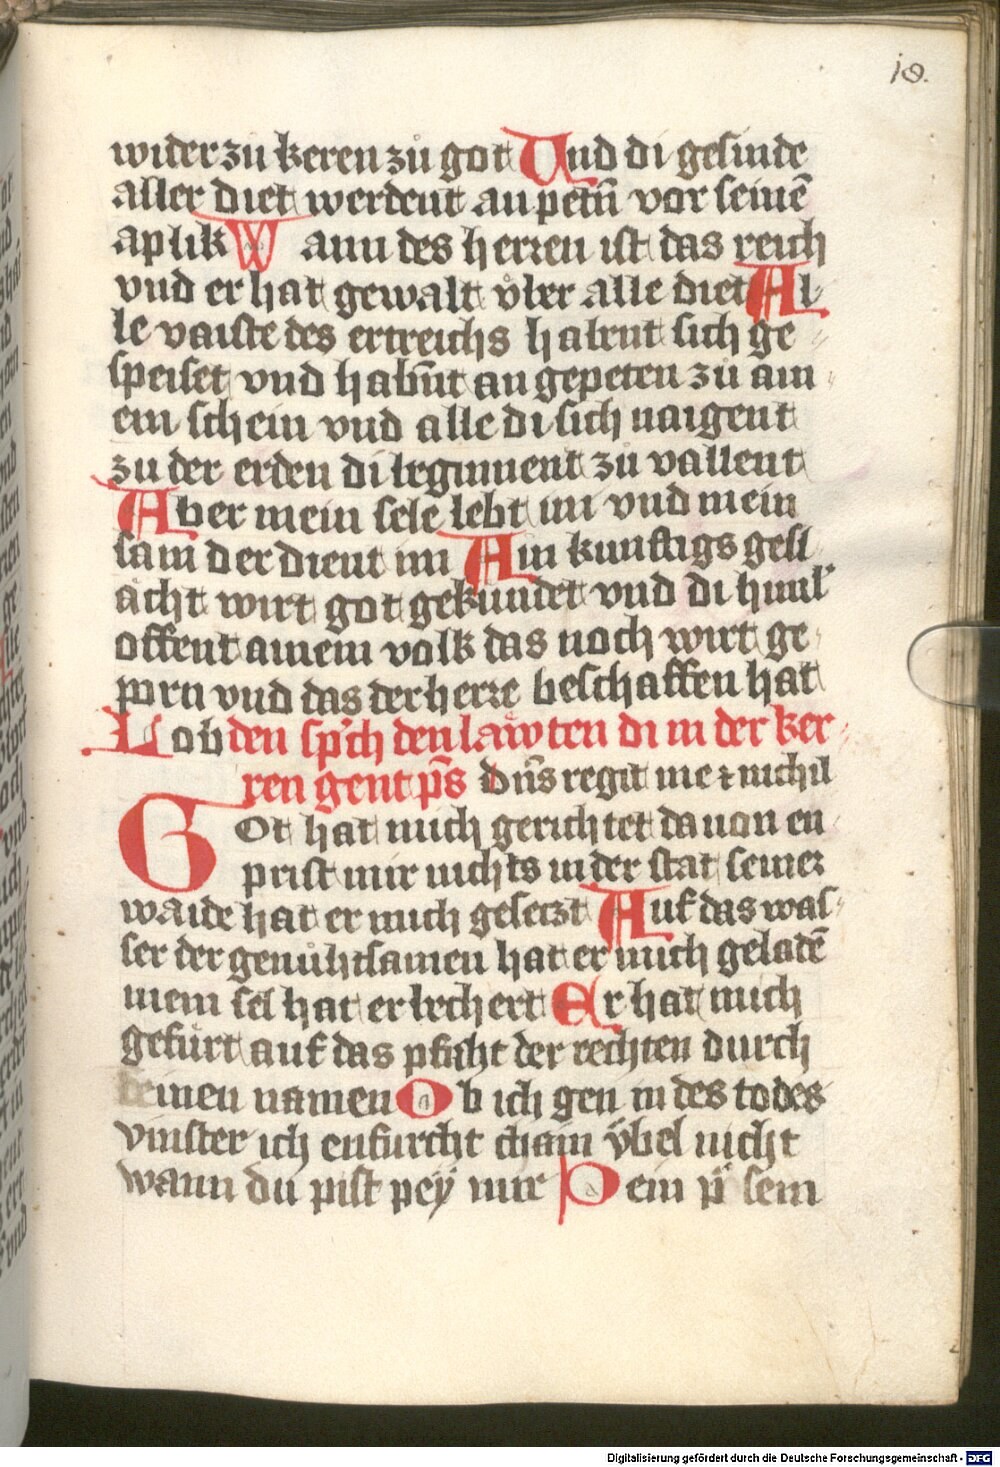 19.
wider zu keren zů got Und di gesinde
aller diet werdent an petn̄ vor seinē
aplik Wann des herren ist das reich
vnd er hat gewalt vͤber alle diet Al
le vaiste des ertreichs habent sich ge
speiset vnd habn̄t an gepeten zů ain
em schein vnd alle di sich naigent
zu der erden di beginnent zů vallent
Aber mein sele lebt im vnd mein
sam der dient im Ain kunftigs gesl
ächt wirt got gekundet vnd di himl̄
offent ainem volk das noch wirt ge
porn vnd das der herre beschaffen hat
Lob den sp̄ch den lawten di in der ker
ren gent ps̄ Dn̄s regit me ⁊ nichil
Got hat mich gerichtet dauon en
prist mir nichts in der stat seiner
waide hat er mich geseczt Auf das was
ser der genůhtsamen hat er mich geladē
mein sel hat er bechert Er hat mich
gefürt auf das phat der rechten durch
seinen namen Ob ich gen in des todes
vinster ich enfurcht chain vͤbel nicht
wann du pist peÿ mir Dein p̄ sein
Digitalisierung gefördert durch die Deutsche Forschungsgemeinschaft - DFG